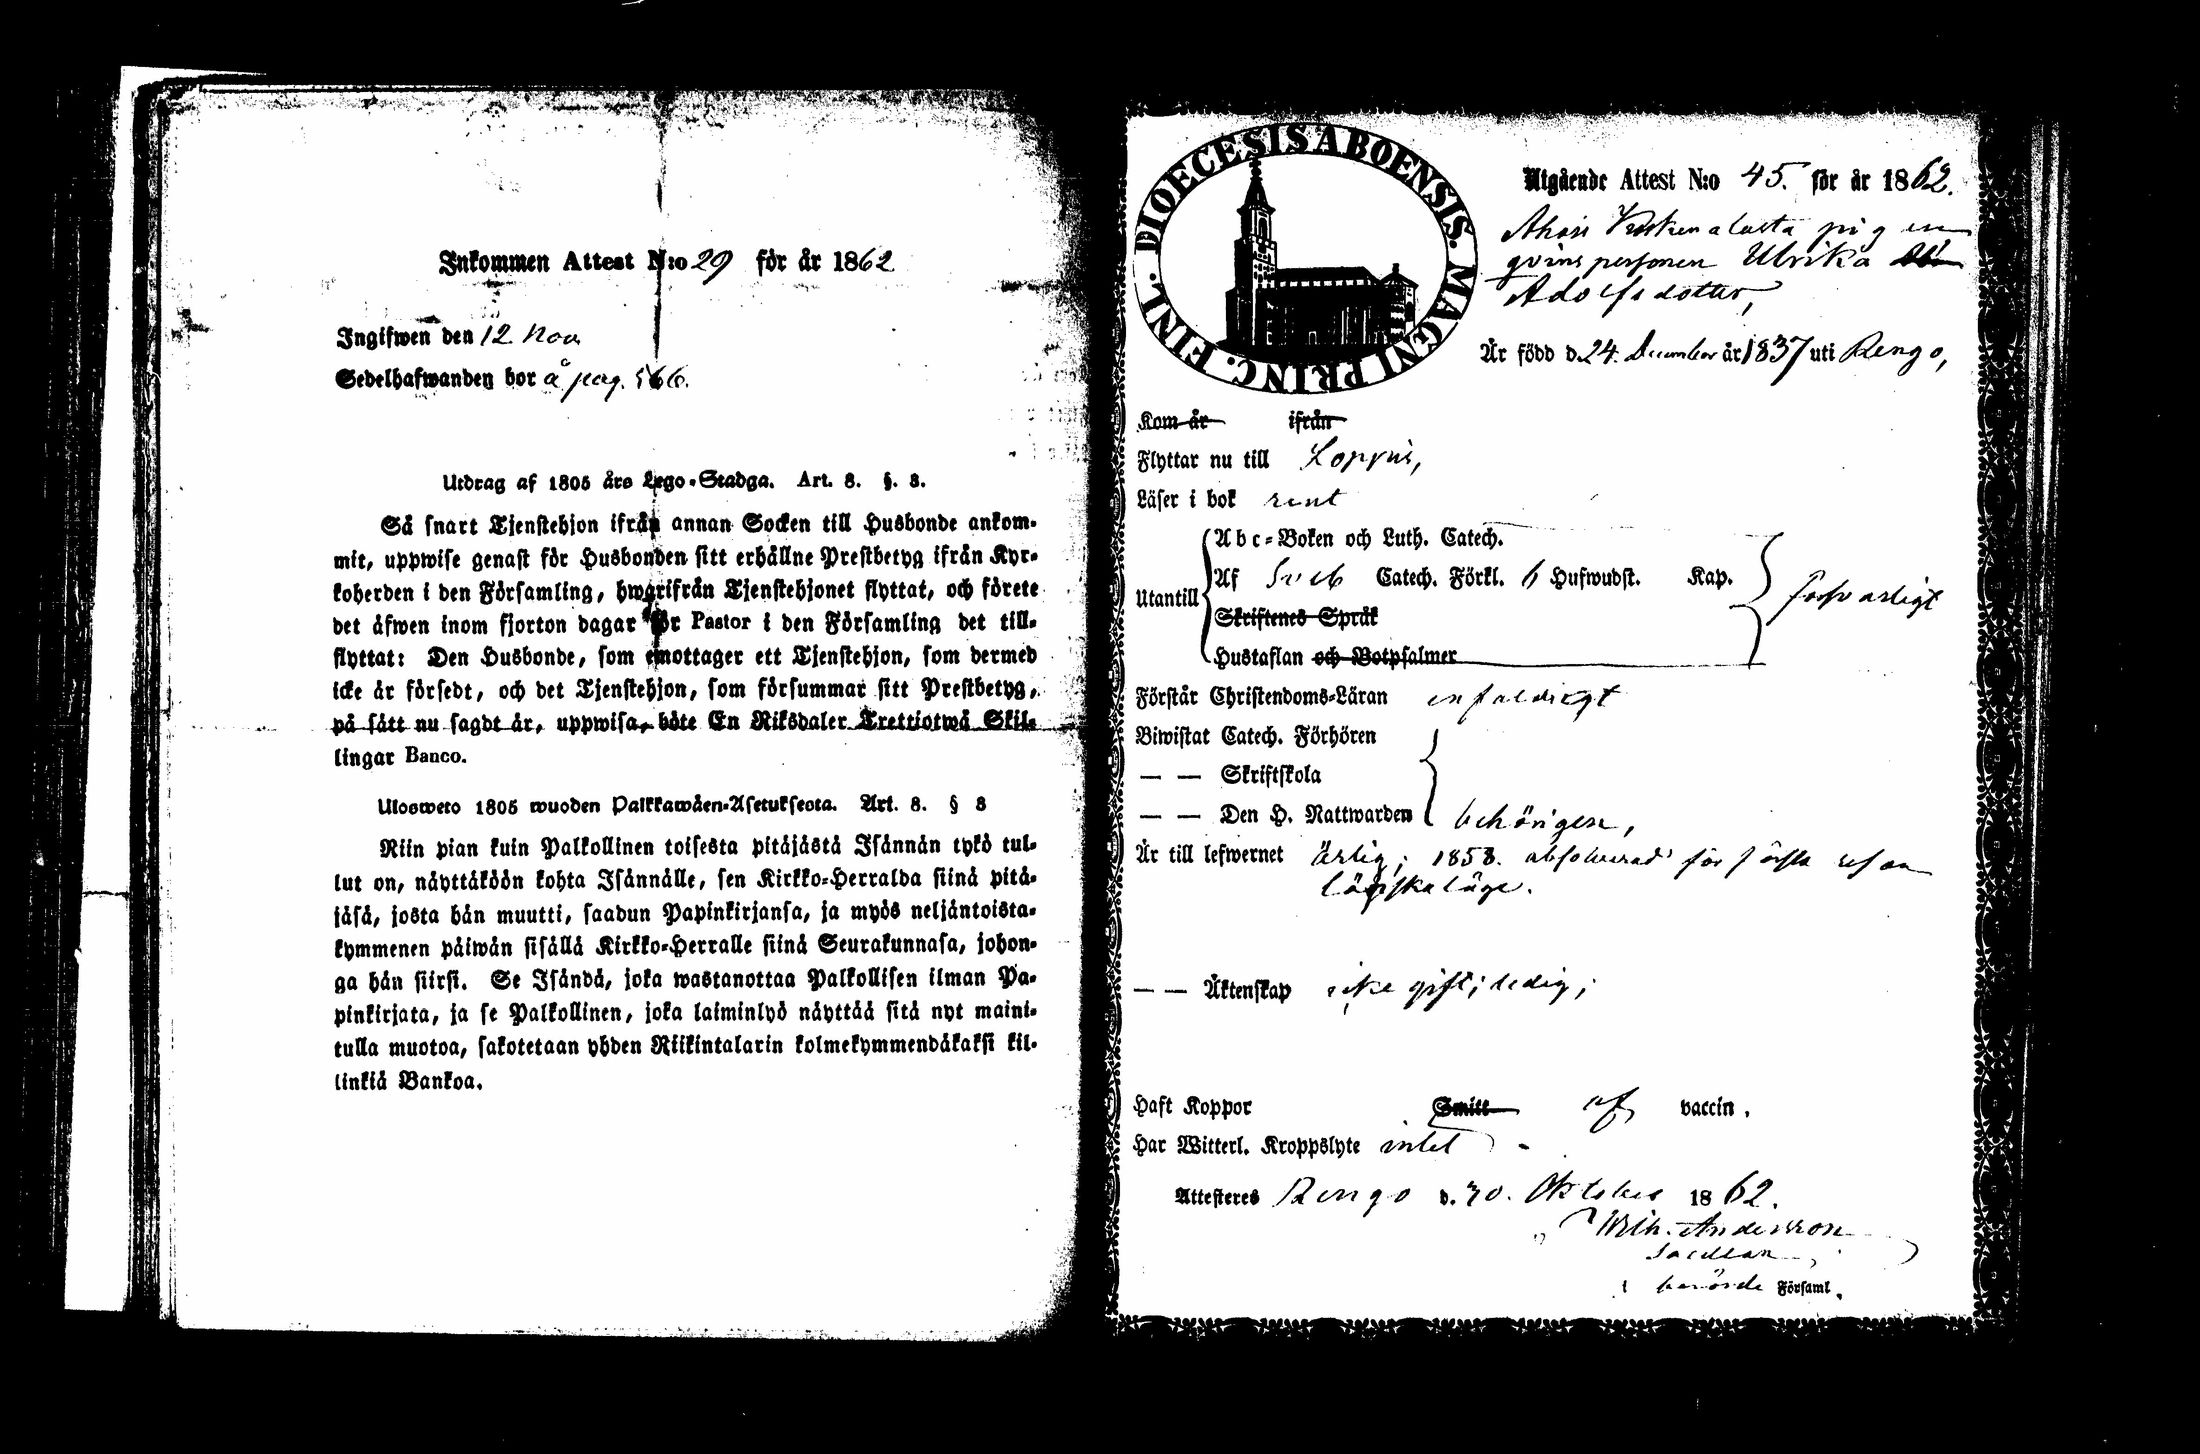 Inkommen Attest N:o 29 för år 1862
Ingifwen den 12 Nov.
Sedelhafwanden bor å pag. 566.
Utdrag af 1805 års Lego-Stadga. Art. 8. §. 8.
Så snart Tjenstehjon ifrån annan Socken till Husbonde ankom-
mit, uppwise genast för Husbonden sitt erhållne Prestbetyg ifrån Kyr-
koherden i den Församling, hwarifrån Tjenstehjonet flyttat, och förete
det äfwen inom fjorton dagar för Pastor i den Församling det till-
flyttat: Den Husbonde, som emottager ett Tjenstehjon, som dermed
icke är försedt, och det Tjenstehjon, som försummar sitt Prestbetyg,
på sätt nu sagdt är, uppwisa, böte En Riksdaler Trettiotwå Skil-
lingar Banco.
Ulosweto 1805 wuoden Palkkawäen-Asetuksesta. Art. 8. § 8
Niin pian kuin Palkollinen toisesta pitäjästä Isännän tykö tul-
lut on, näyttäköön kohta Isännälle, sen Kirkko-Herralda siinä pitä-
jäsä, josta hän muutti, saadun Papinkirjansa, ja myös neljäntoista-
kymmenen päiwän sisällä Kirkko-Herralle siinä Seurakunnasa, johon-
ga hän siirsi. Se Isändä, joka wastanottaa Palkollisen ilman Pa-
pinkirjata, ja se Palkollinen, joka laiminlyö näyttää sitä nyt maini-
tulla muotoa, sakotetaan yhden Riikintalarin kolmekymmendäkaksi kil-
linkiä Bankoa.
DIOECESIS ABOENSIS. MAGNI PRINC. FINL.
Utgående Attest N:o 45. för år 1862.
pigan
qvinspersonen Ulrika
Adolfsdotter,
Är född d. 24. December år 1837 uti Rengo,
Kom år ifrån
Flyttar nu till Loppis,
Läser i bok rent
Abc-Boken och Luth. Catech.
Utantill Af Sveb Catech. Förkl. 6 Hufwudst. Kap. försvarligt
Skriftenes Språk
Hustaflan och Botpsalmer
Förstår Christendoms-Läran enfaldigt
Biwistat Catech. Förhören
— — Skriftskola
— — Den H. Nattwarden behörigen,
Är till lefwernet ärlig; 1858. absolverad för första resan
lägerskaläge.
— — Äktenskap icke gift; ledig;
Haft Koppor Smitt af vaccin.
Har Witterl. Kroppslyte intet
Attesteres Rengo d. 30. Oktober 1862.
Wilh. Andersson
Sacellan
i berörde Församl.